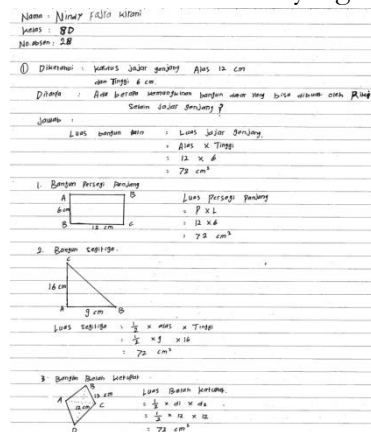 Nama : Nindy Fajra Kirani
Kelas : 8D
No. absen : 28
① Diketahui : kertas jajar genjang Alas 12 cm
dan Tinggi 6 cm.
Ditanya : Ada berapa kemungkinan bangun datar yang bisa dibuat oleh
Selain Jajar Genjang ?
Jawab :
Luas bangun lain : Luas jajar genjang.
: Alas x Tinggi
: 12 x 6
: 72 cm²
1. Bangun Persegi Panjang
A B
6 cm
B 12 cm C
Luas Persegi Panjang
= P x L
= 12 x 6
= 72 cm²
2. Bangun segitiga.
C
16 cm
A 9 cm B
Luas segitiga : 1/2 x alas x Tinggi
: 1/2 x 9 x 16
: 72 cm²
3. Bangun Belah ketupat
B
12 cm
A 12 cm C
D
Luas Belah ketupat.
= 1/2 x d1 x d2
= 1/2 x 12 x 12
= 72 cm²